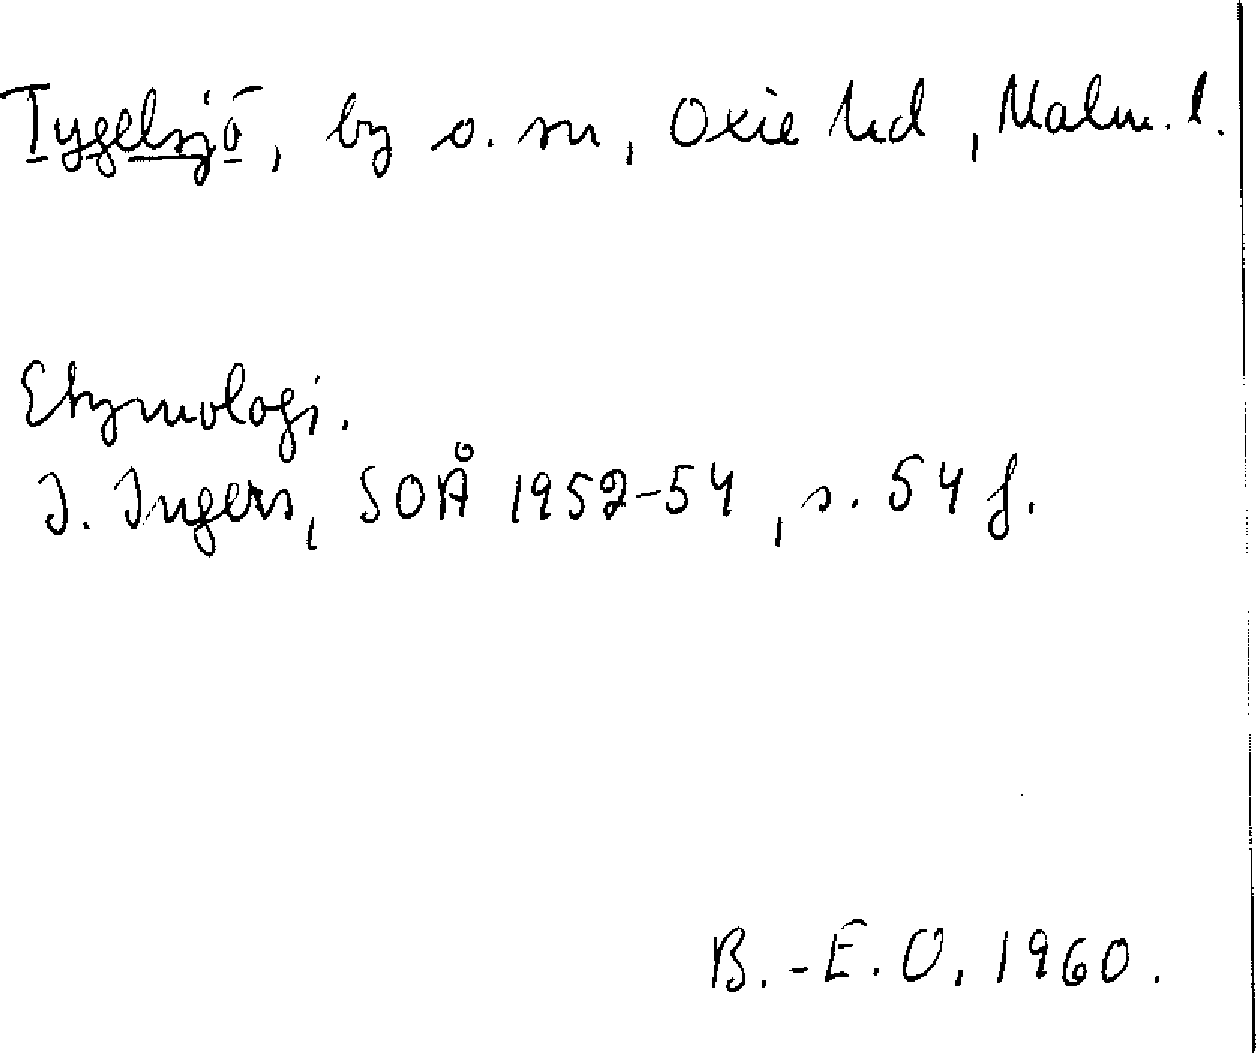 Tygelsjö, by o. sn, Oxie hd, Malm. l.
Etymologi.
I. Ingers, SOÅ 1952-54, s. 54 f.
B.-E. O. 1960.